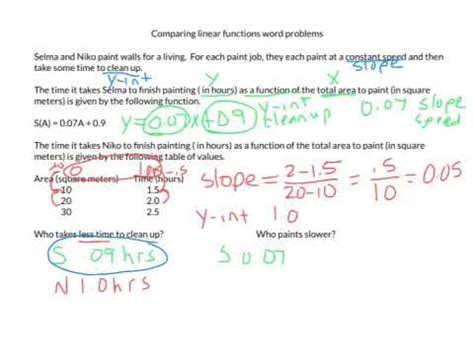 Comparing linear functions word problems
Selma and Niko paint walls for a living. For each paint job, they each paint at a constant speed and then
slope
take some time to clean up.
y-int
The time it takes Selma to finish painting ( in hours) as a function of the total area to paint (in square
Y
X
meters) is given by the following function.
y-int
cleanup
0.07 slope
speed
S(A) = 0.07A + 0.9
y=0.07x+0.9
The time it takes Niko to finish painting ( in hours) as a function of the total area to paint (in square
meters) is given by the following table of values.
0
Area (square meters)
Time (hours)
10
1.5
20
2.0
30
2.5
slope = 2-1.5 / 20-10 = .5 / 10 = 0.05
y-int 1.0
Who takes less time to clean up?
Who paints slower?
S .09hrs
N 1.0hrs
S 0.07